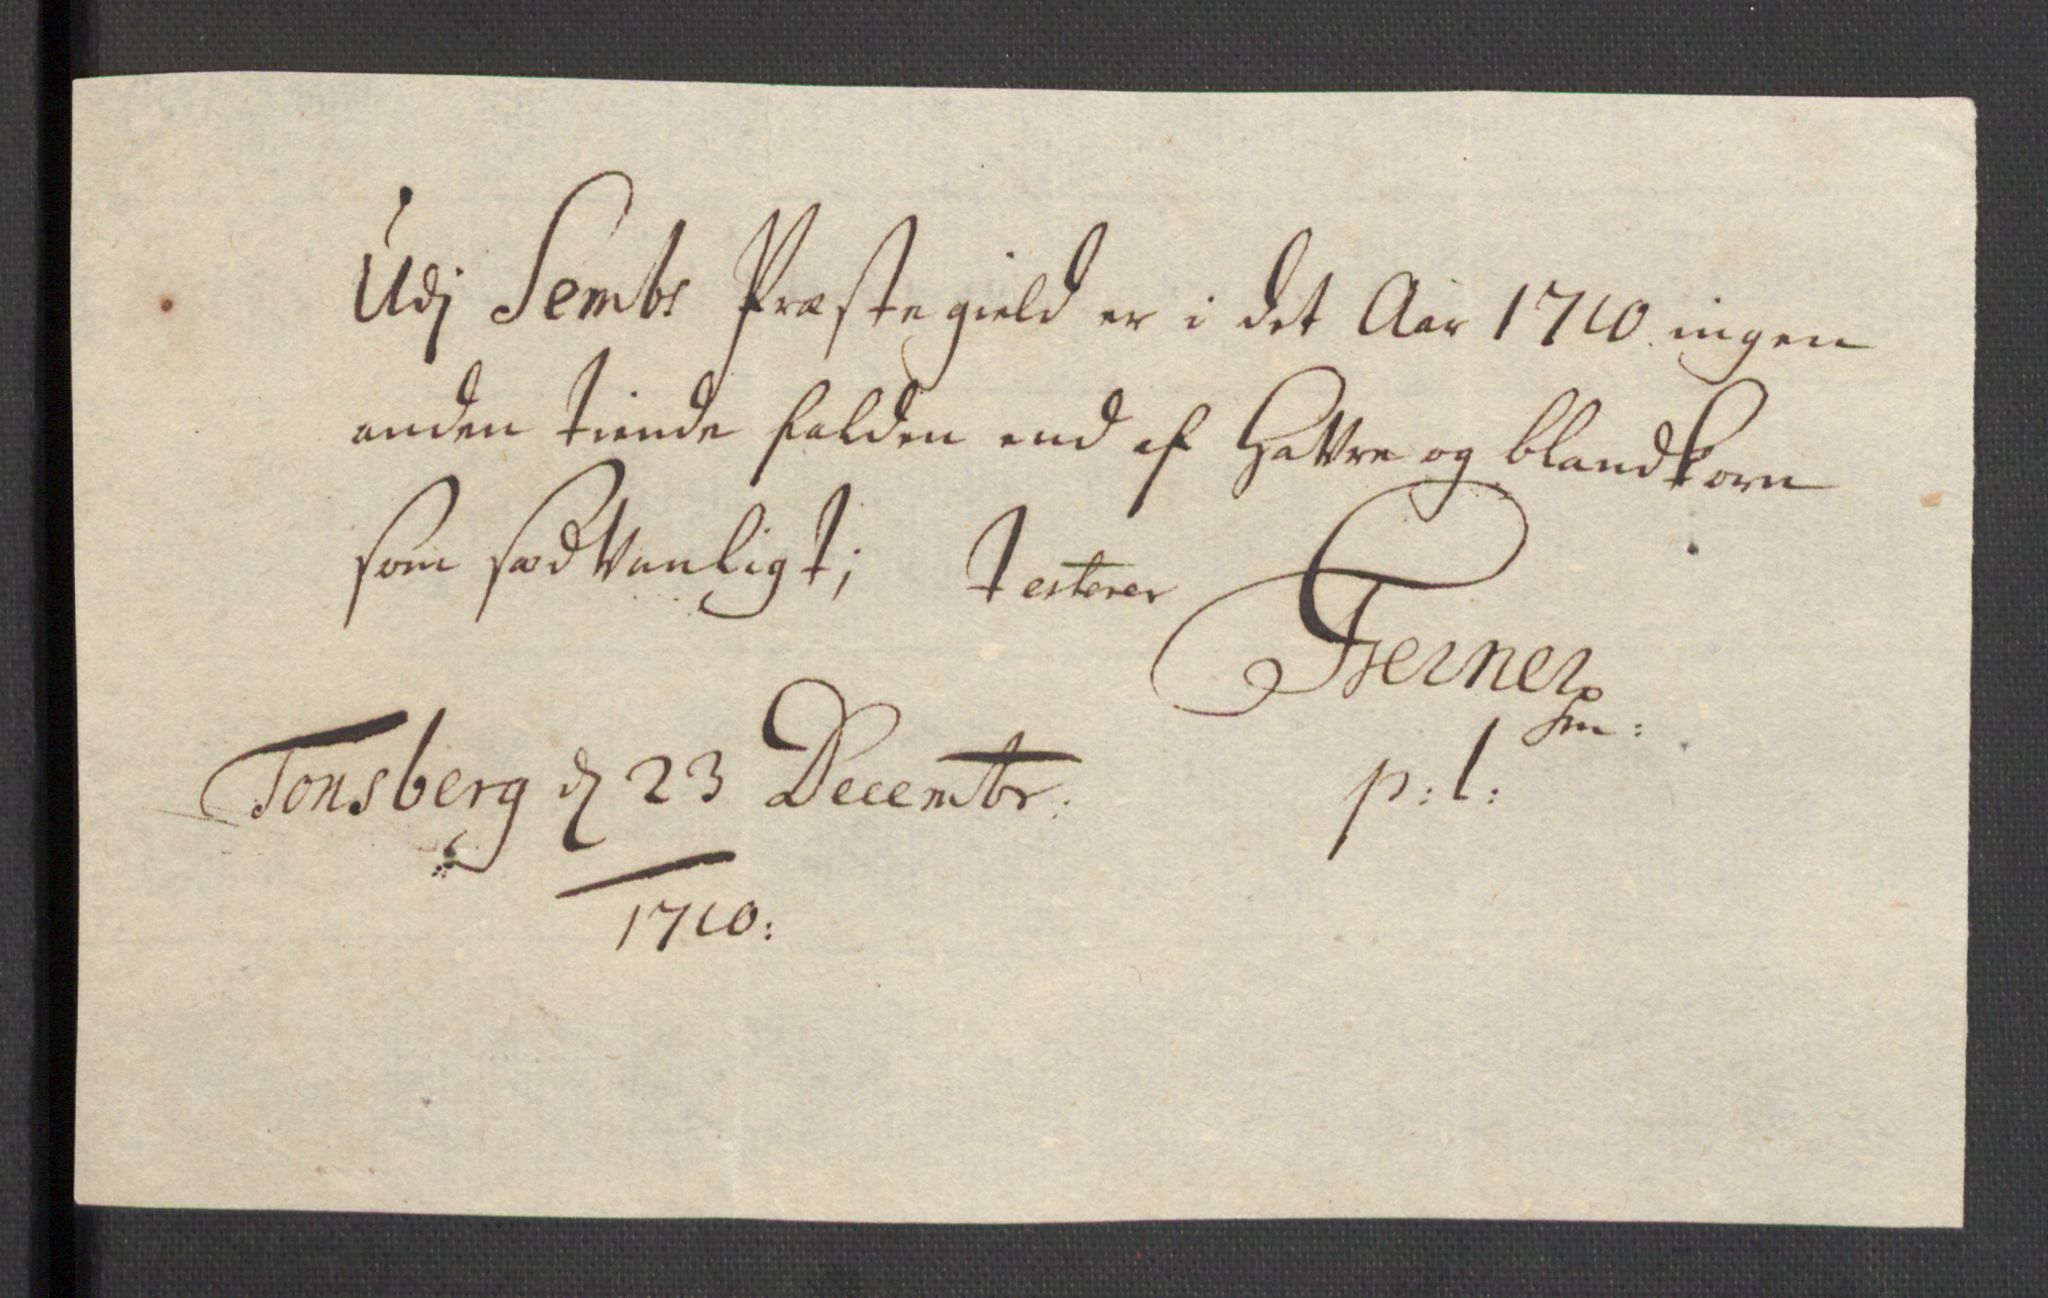 Udj Sembs Præstegield er i det Aar 1710 ingen
anden tiende falden end af Hafvre og blandkorn
som sædvanligt; testerer
TWerner
Sen:
Tonsberg d 23 Decembr:
p: l:
1710: